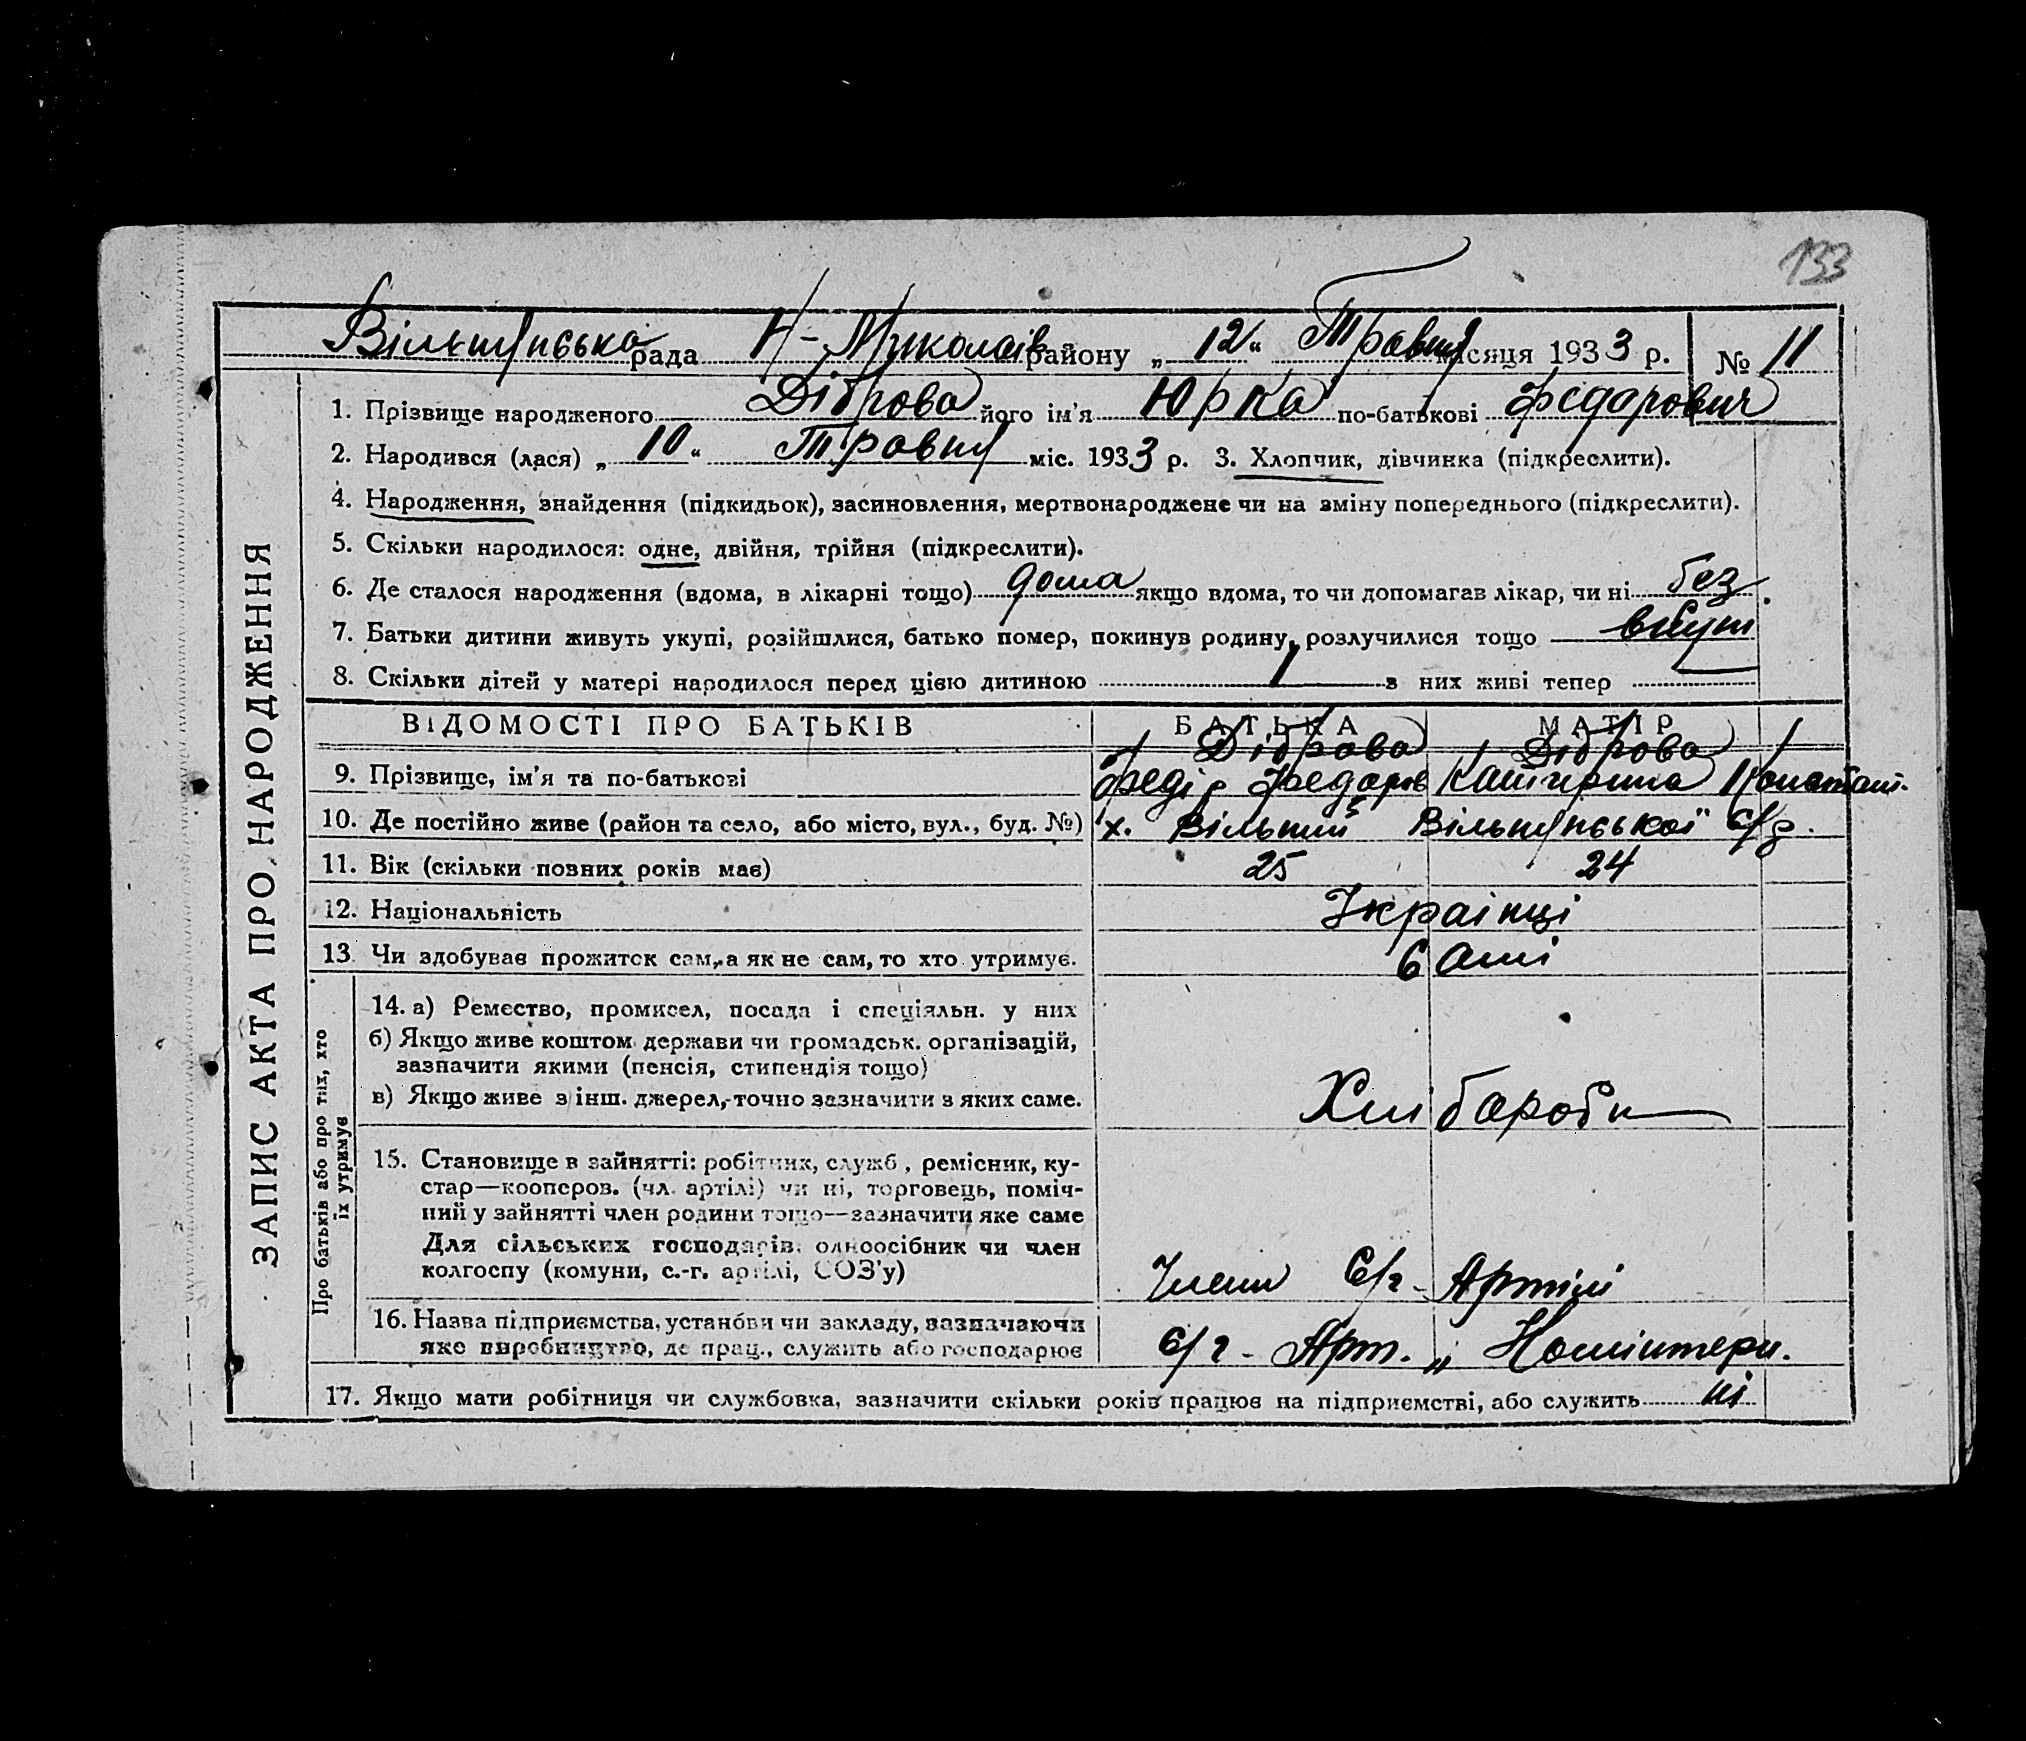 133
Вільнянська рада Н-Миколаїв району „ 12 “ Травня місяця 1933 р. № 11
1. Прізвище народженого Діброва його ім'я Юрка по-батькові Федарович
2. Народився (лася) „ 10 “ Травня міс. 1933 р. 3. Хлопчик, дівчинка (підкреслити).
4. Народження, знайдення (підкидьок), засиновлення, мертвонароджене чи на зміну попереднього (підкреслити).
5. Скільки народилося: одне, двійня, трійня (підкреслити).
6. Де сталося народження (вдома, в лікарні тощо) дома якщо вдома, то чи допомагав лікар, чи ні без
7. Батьки дитини живуть укупі, розійшлися, батько помер, покинув родину, розлучилися тощо
8. Скільки дітей у матері народилося перед цією дитиною 1 з них живі тепер
ЗАПИС АКТА ПРО НАРОДЖЕННЯ
ВІДОМОСТІ ПРО БАТЬКІВ БАТЬКА МАТІР
Діброва Діброва
9. Прізвище, ім'я та по-батькові Федір Федоров Катирина Констант.
10. Де постійно живе (район та село, або місто, вул., буд. №) х. Вільний Вільнянської С/р.
11. Вік (скільки повних років має) 25 24
12. Національність Українці
13. Чи здобуває прожиток сам, а як не сам, то хто утримує. Самі
Про батьків або про тих, хто
їх утримує
14. а) Ремество, промисел, посада і спеціяльн. у них
б) Якщо живе коштом держави чи громадськ. організацій,
зазначити якими (пенсія, стипендія тощо)
в) Якщо живе з інш. джерел, точно зазначити з яких саме. Хліборобн
15. Становище в зайнятті: робітник, служб., ремісник, ку-
стар—кооперов. (чл. артілі) чи ні, торговець, поміч-
ний у зайнятті член родини тощо—зазначити яке саме
Для сільських господарів: одноосібник чи член
колгоспу (комуни, с.-г. артілі, СОЗ'у) Члени С/г - Артілі
16. Назва підприємства, установи чи закладу, зазначаючи
яке виробництво, де прац., служить або господарює С/г - Арт. „ Комінтерн.
17. Якщо мати робітниця чи службовка, зазначити скільки років працює на підприємстві, або служить ні